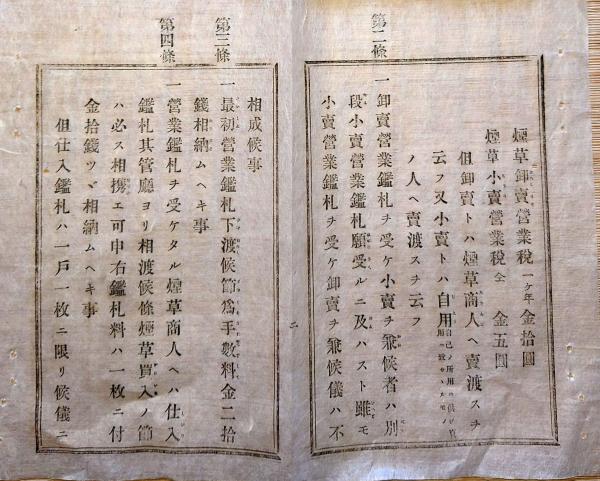 煙草卸賣營業稅 一ケ年 金拾圓
煙草小賣營業稅 仝 金五圓
但卸賣トハ煙草商人ヘ賣渡スヲ
云フ又小賣トハ自用
ノ人ヘ賣渡スヲ云フ
第二條
一卸賣營業鑑札ヲ受ケ小賣ヲ兼候者ハ別
段小賣營業鑑札願受ルニ及ハスト雖モ
小賣營業鑑札ヲ受ケ卸賣ヲ兼候儀ハ不
二
相成候事
第三條
一最初營業鑑札下渡候節爲手數料金二拾
錢相納ムヘキ事
第四條
一營業鑑札ヲ受ケタル煙草商人ヘハ仕入
鑑札其管廳ヨリ相渡候條煙草買入ノ節
ハ必ス相携エ可申右鑑札料ハ一枚ニ付
金拾錢ツヽ相納ムヘキ事
但仕入鑑札ハ一戶一枚ニ限リ候儀ニ